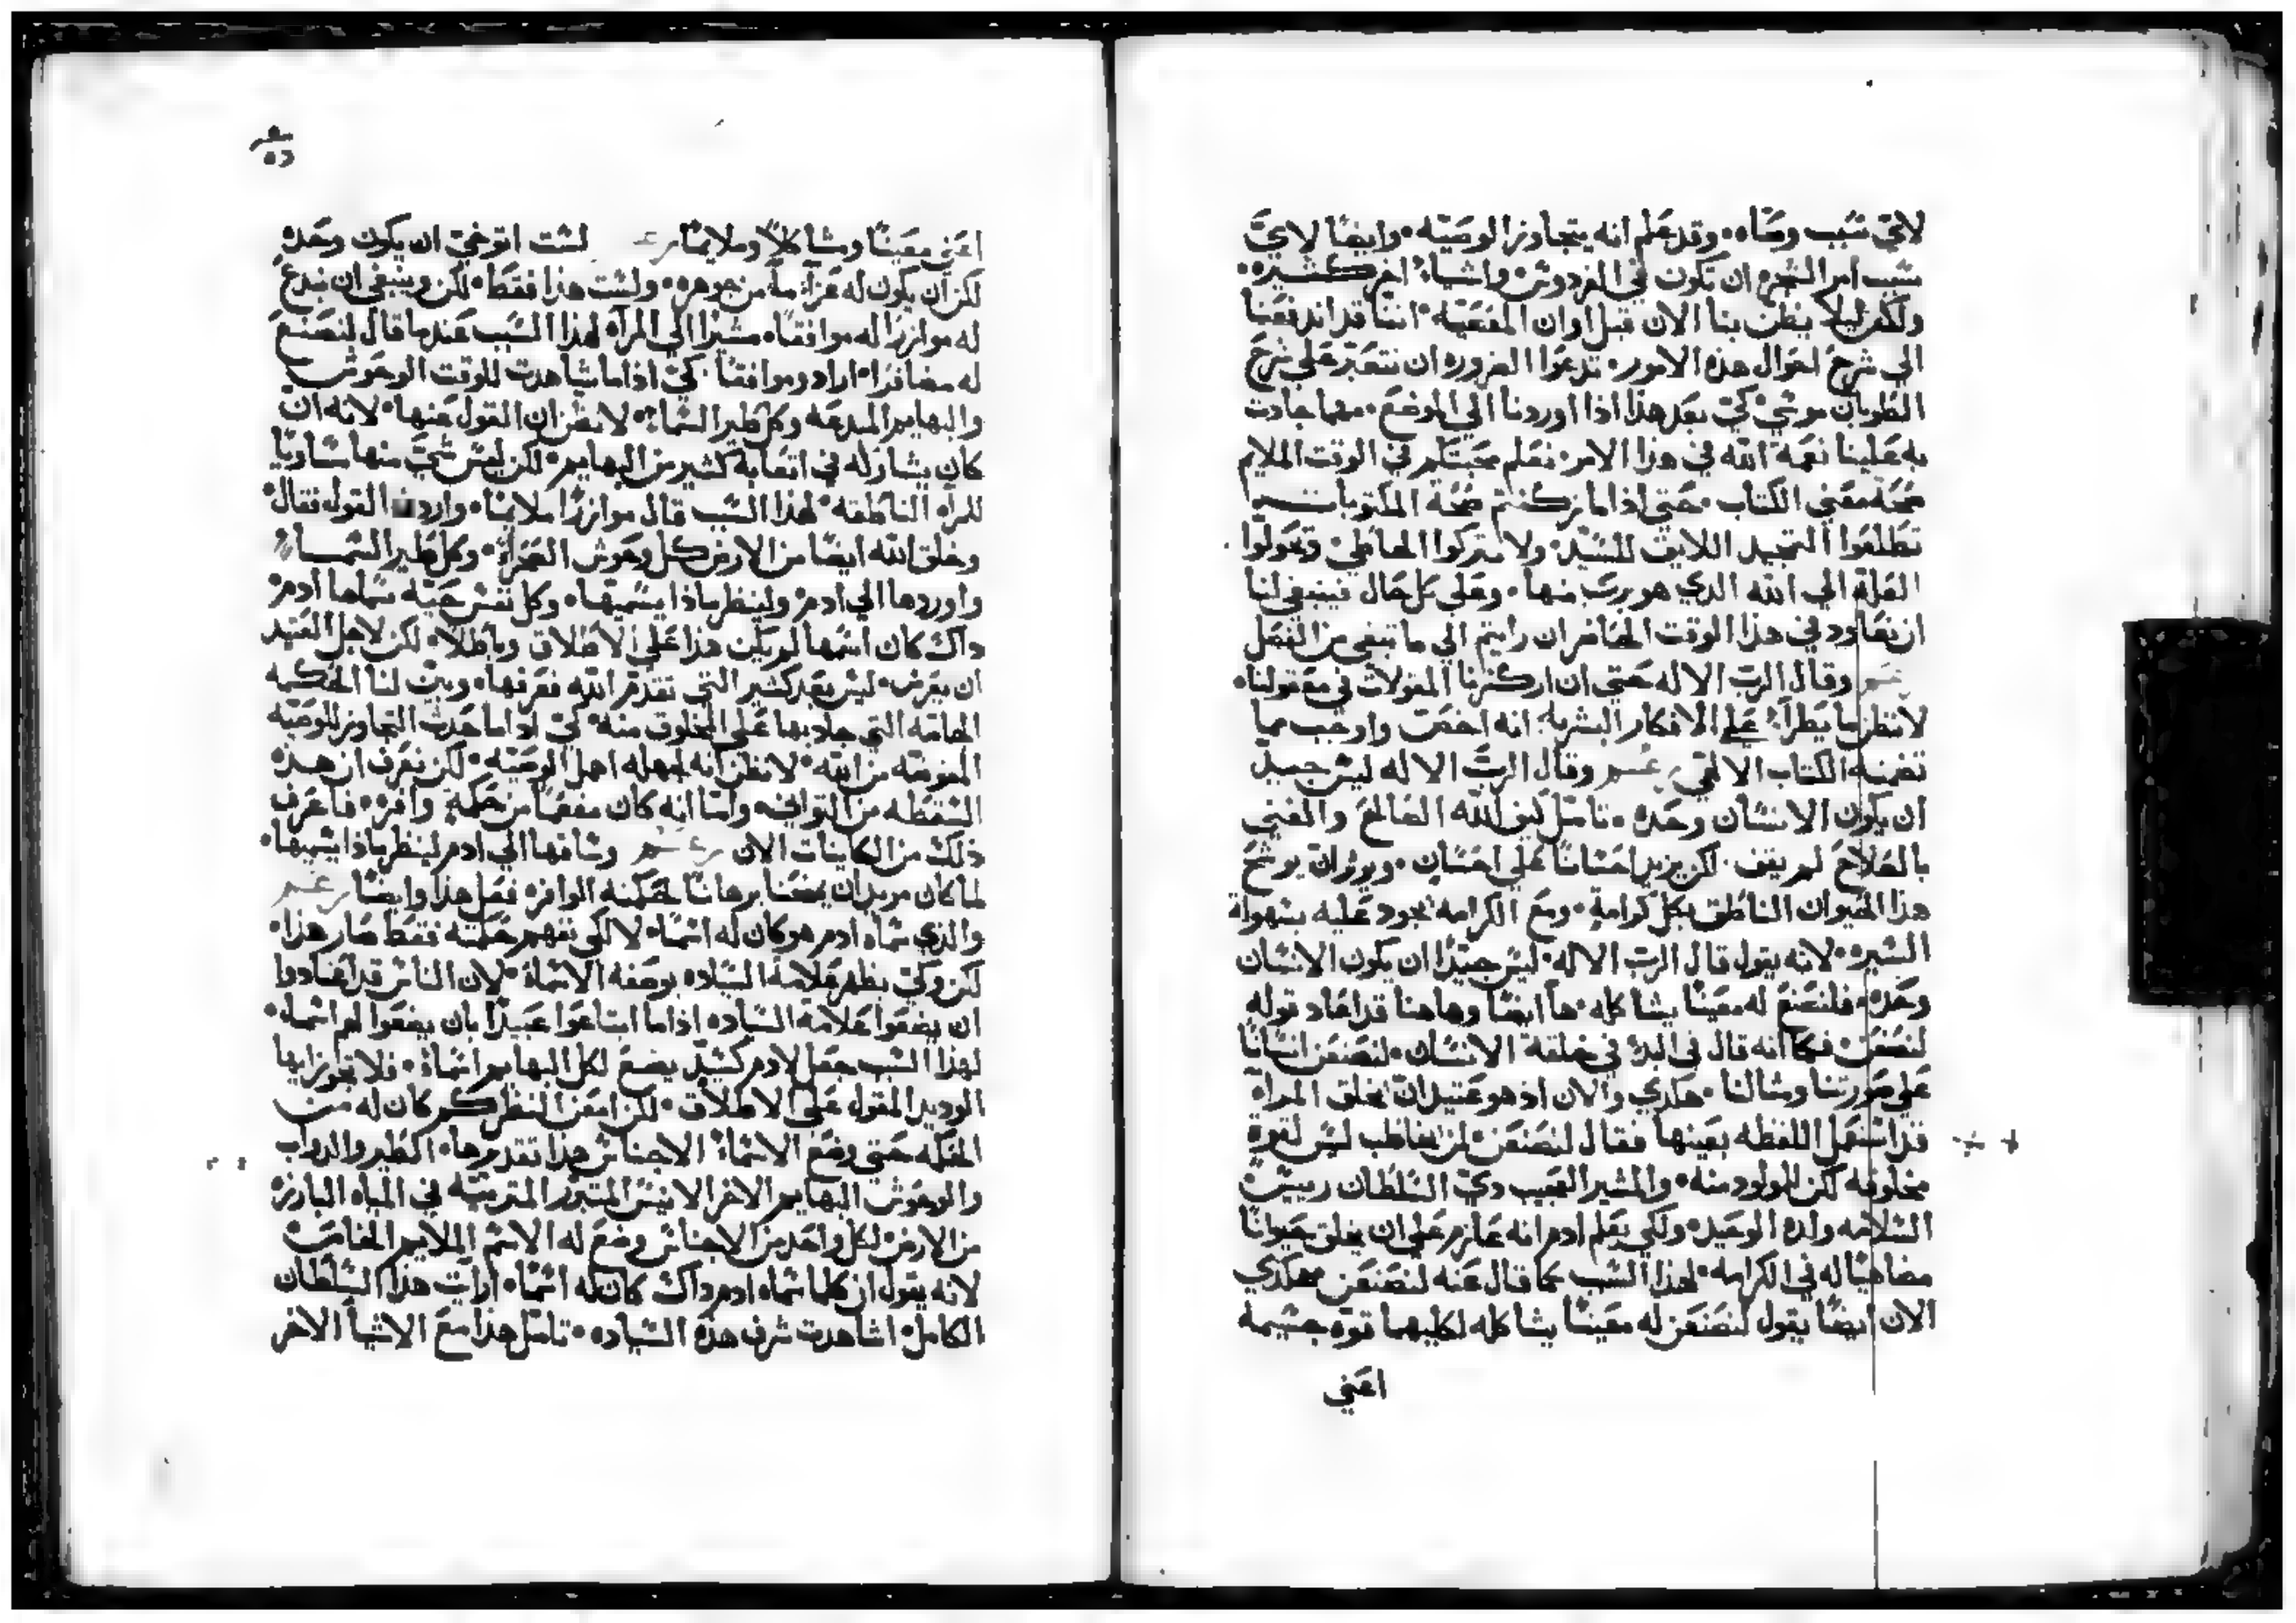 لاي سبب وصاه٠ وقد علم انه يتجاوز الوصيه٠ وايضا لاي
سبب امر الشجره ان تكون في الفردوس واشياء اخر كثيره٠
ولكن ليلا يظن بنا الان قبل اوان المنفعيه اننا قد اندفعنا
الي شرح احوال هذه الامور٠ تدعوا الضروره ان نتعبر علي شرح
الطوبان موسي كي بعد هذا اذا اوردنا الي الموضع٠ مهما جادت
به علينا نعمة الله في هذا الامر نعلم محبتكم في الوقت الملايم
صحة معني الكتاب٠ حتي اذا ما ركنتم صحة المكتوبات
تطلعوا التمجيد اللايق للسيد٠ ولا تتركوا الخاطي وتحولوا
العلة الي الله الدي هو بري منها٠ وعلي كل حال فينبغي لنا
ان نعاود في هذا الوقت الحاضر ان رايتم الي ما تبقي من الفصل
وقال الرب الاله حتي ان اركزنا المقولات في معقولنا٠
لا نظن ما يطرأ علي الافكار البشريه٠ انه اخص واوجب مما
تضمنه الكتاب الالاهي وقال الرب الاله ليس جيد
ان يكون الانسان وحده٠ تامل كيف الله الصالح والغني
بالصلاح لم يقف٠ لكن يزيد احسانا علي احسان٠ ويوثران يوشح
هذا الحيوان الناطق بكل كرامة٠ ومع الكرامه يجود عليه بسهولة
السيره٠ لانه يقول قال الرب الاله٠ ليس جيدا ان يكون الانسان
وحده٠ فلنصنع له معينا يشاكله٠ ها ايضا وهاهنا قد اعاد قوله
لنصنعن فكما انه قال في البدء في خلقة الانسان٠ لنصنعن انسانا
علي صورتنا ومثالنا٠ هكدي والان اد هو عتيد ان يخلق المراه
قد استعمل اللفظه بعينها فقال لنصنعن٠ لمن يخاطب ليس لقوة
مخلوقه لكن للولود منه٠ والمشير العجيب دي السلطان رييس
السلامه ولده الوحيد٠ ولكي يعلم ادم انه عازم علي ان يخلق حيوانا
مضاهيا له في الكرامه٠ لهذا السبب كما قال عنه لنصنعن هكدي
الان ايضا يقول لنصنعن له معينا يشاكله لكليهما قوه جسيمه
اعني
اعني معينا ومشاكلا وملايما لست اتوخي ان يكون وحده
لكن ان يكون له عزاء ما من جوهره٠ ولست هذا فقط٠ لكن وينبغي ان نبدع
له موازرا له موافقا٠ مشيرا الي المراه لهذا السبب عند ما قال لنصنع
له مضافرا٠ اراد وموافقا٠ كي اذا ما شاهدت للوقت الوحوش
والبهايم المبدعه وكل طير السماء٠ لا نظن ان القول عنها٠ لانه ان
كان يشاركه في اتعابه كثير من البهايم٠ لكن ليس شي منها مساويا
للمراه الناطقه٠ لهذا السبب قال موازرا ملايما٠ واردف القول فقال٠
وخلق الله ايضا من الارض كل وحوش الصحراء٠ وكل طير السماء
واوردها الي ادم ولينظر ماذا يسميها٠ وكل نفس حيه سماها ادم
داك كان اسمها لم يكن هذا علي الاطلاق وباطلا٠ لكن لاجل العتيد
ان يعرض٠ ليس بعد كثير التي تقدم الله فعرفها٠ وبين لنا الحكمه
الخاصه التي جاد بها علي المخلوق منه٠ كي اذا ما حدث التجاوز للوصيه
المفروضه من الله٠ لا نظن انه لجهله اهمل الوصيه٠ لكن نعرف ان هذه
السقطه من التواني٠ واما انه كان مفعما من حكمة وافره٠ فاعرف
ذلك من الكاينات الان وساقها الي ادم لينظر ماذا يسميها٠
لما كان مريدا ان يمنحنا برهانا لحكمته الوافره فعل هذا وايضا
والذي سماه ادم هو كان له اسما٠ لا لكي نفهم حكمته فقط صار هذا٠
لكن وكي يظهر علامة السياده بوضعه الاسماء٠ لان الناس قد اعتادوا
ان يضعوا علامة السياده اذا ما ابتاعوا عبيدا بان يضعوا لهم اسماء٠
لهذا السبب جعل لادم كسيد يضع لكل البهايم اسماء٠ فلا تجوز ايها
الوديد المقول علي الاطلاق٠ لكن امعن النظر كم كان له من
الحكمه حتي وضع الاسماء الاجناس هذا تقديرها٠ الطير والدواب
والوحوش البهايم الاخر الانيس المتبرر المتربيه في المياه البارزه
من الارض لكل واحد من الاجناس وضع له الاسم الملايم الخاص
لانه يقول ان كلما سماه ادم داك كان له اسما٠ ارايت هذا السلطان
الكامل اشاهدت شرف هذه السياده٠ تامل هذا مع الاشيا الاخر